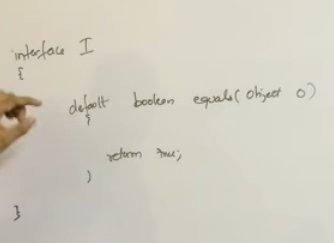 interface I
{
default boolean equals( Object o)
{
return true;
}
}